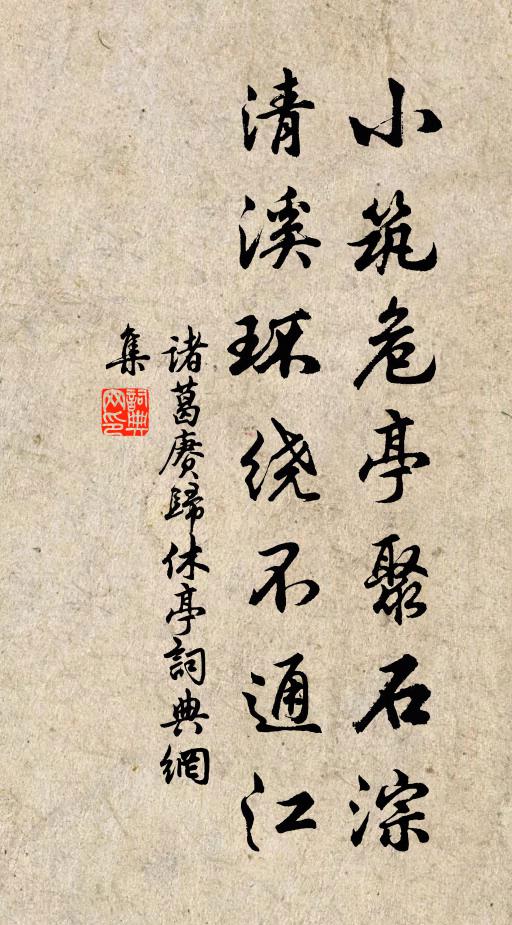 小筑危亭聚石淙
清溪环绕不通江
诸葛赓歸休亭詞典網
集
詞典
网印